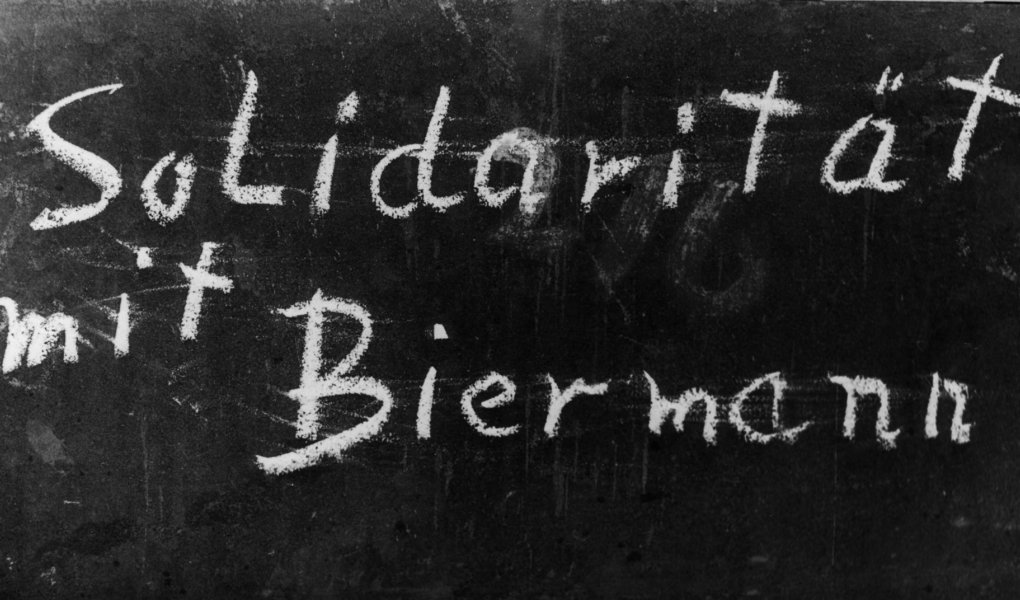 Solidarität
mit Biermann